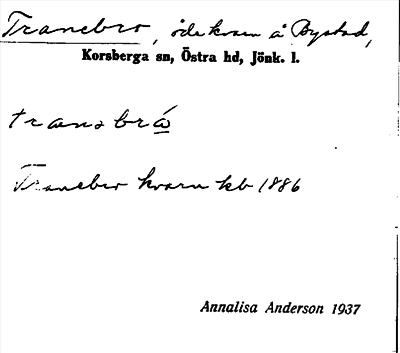 Tranebro, öde kvarn å Bystad,
Korsberga sn, Östra hd, Jönk. l.
tranəbrá
Tranebro kvarn kb 1886
Annalisa Anderson 1937